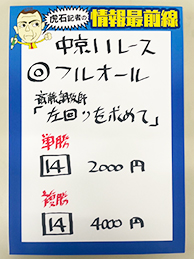 虎石記者の
情報最前線
中京11レース
◎フルオール
斎藤調教師
「左回りを求めて」
単勝
14 2000円
複勝
14 4000円